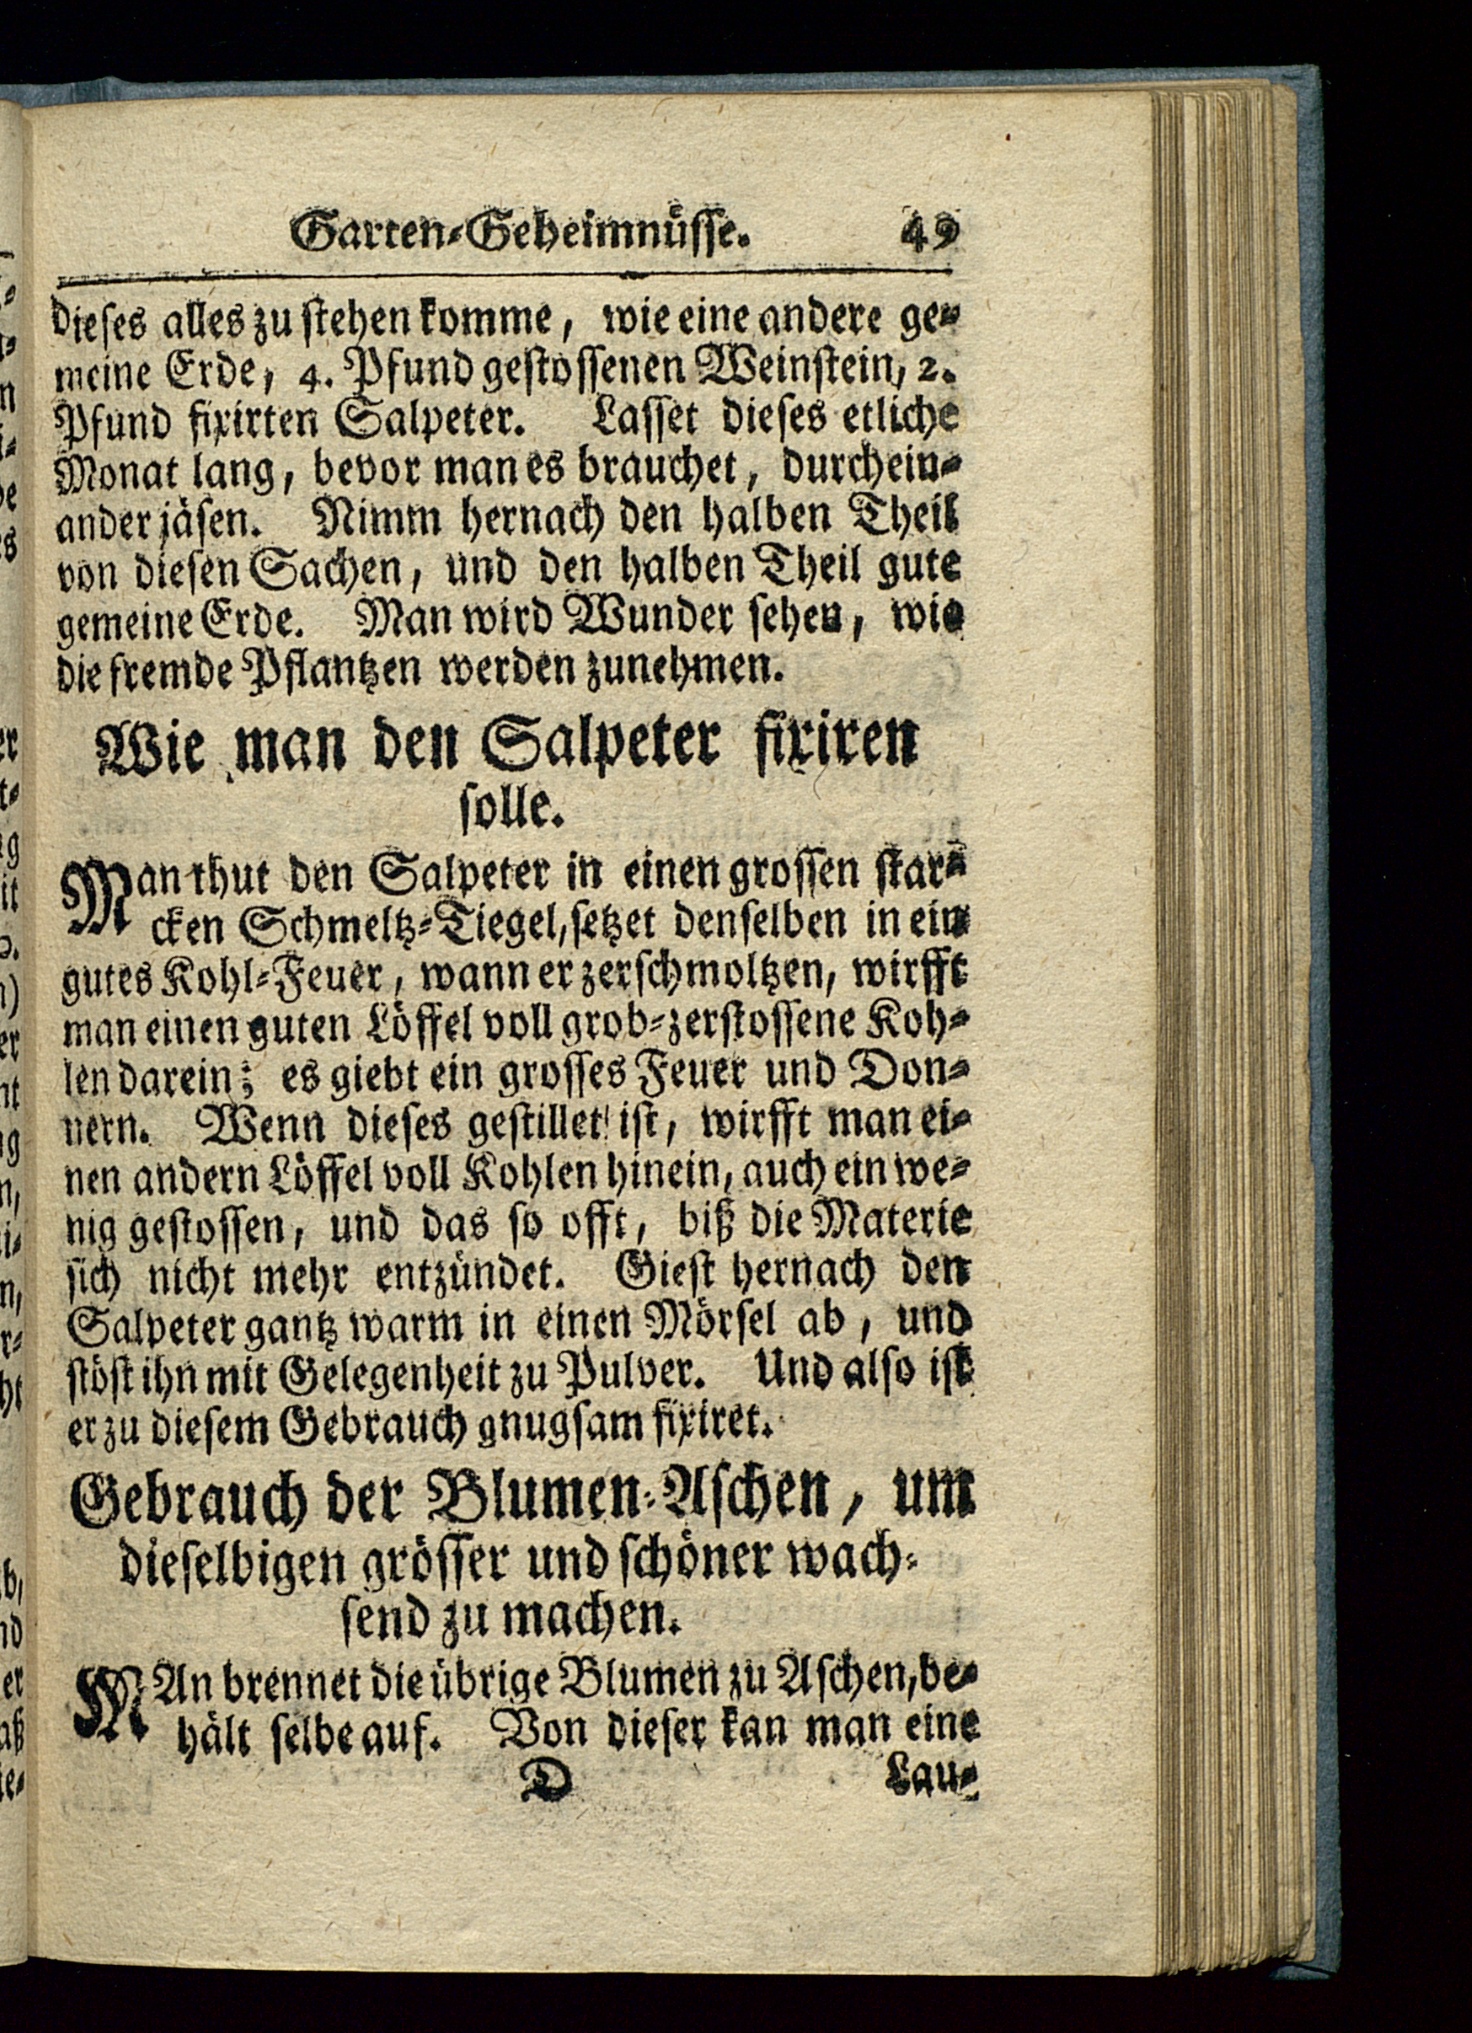 Garten-Geheimnüsse. 49
dieses alles zu stehen komme, wie eine andere ge-
meine Erde, 4. Pfund gestossenen Weinstein, 2.
Pfund fixirten Salpeter. Lasset dieses etliche
Monat lang, bevor man es brauchet, durchein-
ander jäsen. Nimm hernach den halben Theil
von diesen Sachen, und den halben Theil gute
gemeine Erde. Man wird Wunder sehen, wie
die fremde Pflantzen werden zunehmen.
Wie man den Salpeter fixiren
solle.
Man thut den Salpeter in einen grossen star-
cken Schmeltz-Tiegel, setzet denselben in ein
gutes Kohl-Feuer, wann er zerschmoltzen, wirfft
man einen guten Löffel voll grob-zerstossene Koh-
len darein; es giebt ein grosses Feuer und Don-
nern. Wenn dieses gestillet ist, wirfft man ei-
nen andern Löffel voll Kohlen hinein, auch ein we-
nig gestossen, und das so offt, biß die Materie
sich nicht mehr entzündet. Giest hernach den
Salpeter gantz warm in einen Mörsel ab, und
stöst ihn mit Gelegenheit zu Pulver. Und also ist
er zu diesem Gebrauch gnugsam fixiret.
Gebrauch der Blumen-Aschen, um
dieselbigen grösser und schöner wach-
send zu machen.
MAn brennet die übrige Blumen zu Aschen, be-
hält selbe auf. Von dieser kan man eine
D Lau-